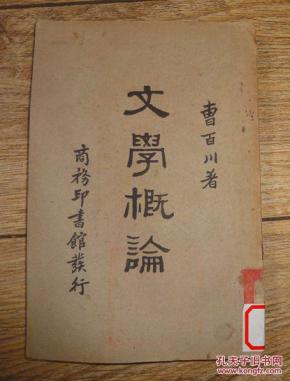 曹百川著
文學概論
商務印書館發行
孔夫子旧书网